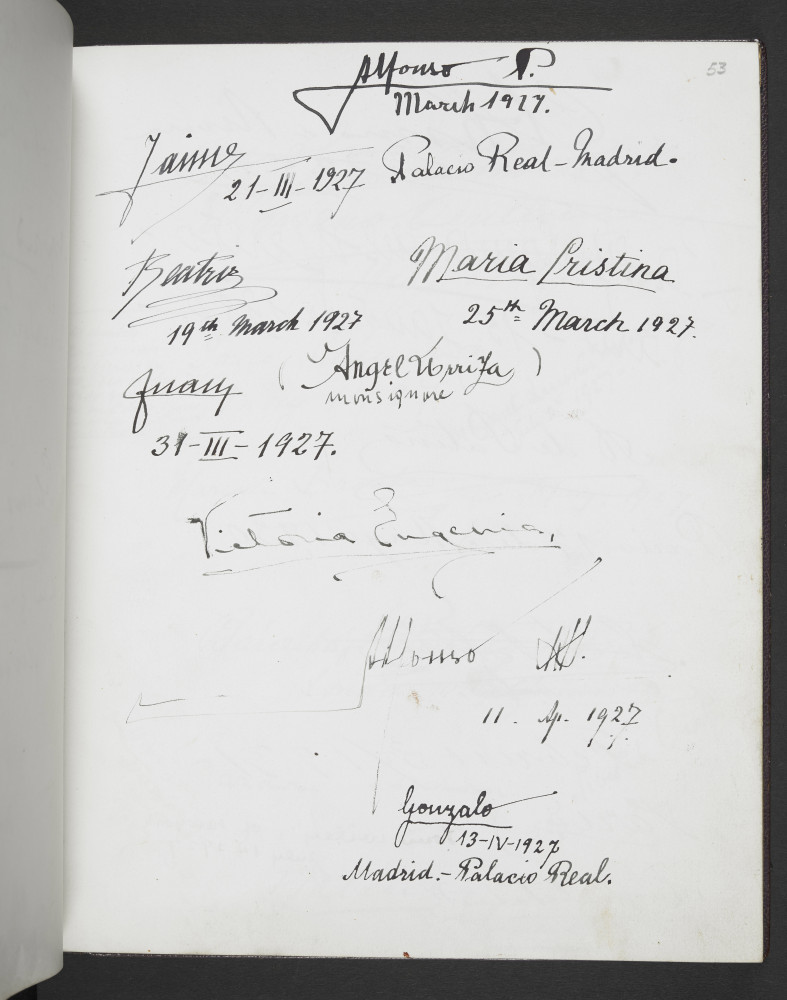 53
Alfonso P.
March 1927.
Jaime
21-III-1927 Palacio Real-Madrid.
Beatriz
19th March 1927
Maria Cristina
25th March 1927.
Juan
31-III-1927.
(Angel Urriza)
monsignore
Victoria Eugenia,
Alfonso
11. Ap. 1927
Gonzalo
13-IV-1927
Madrid.-Palacio Real.